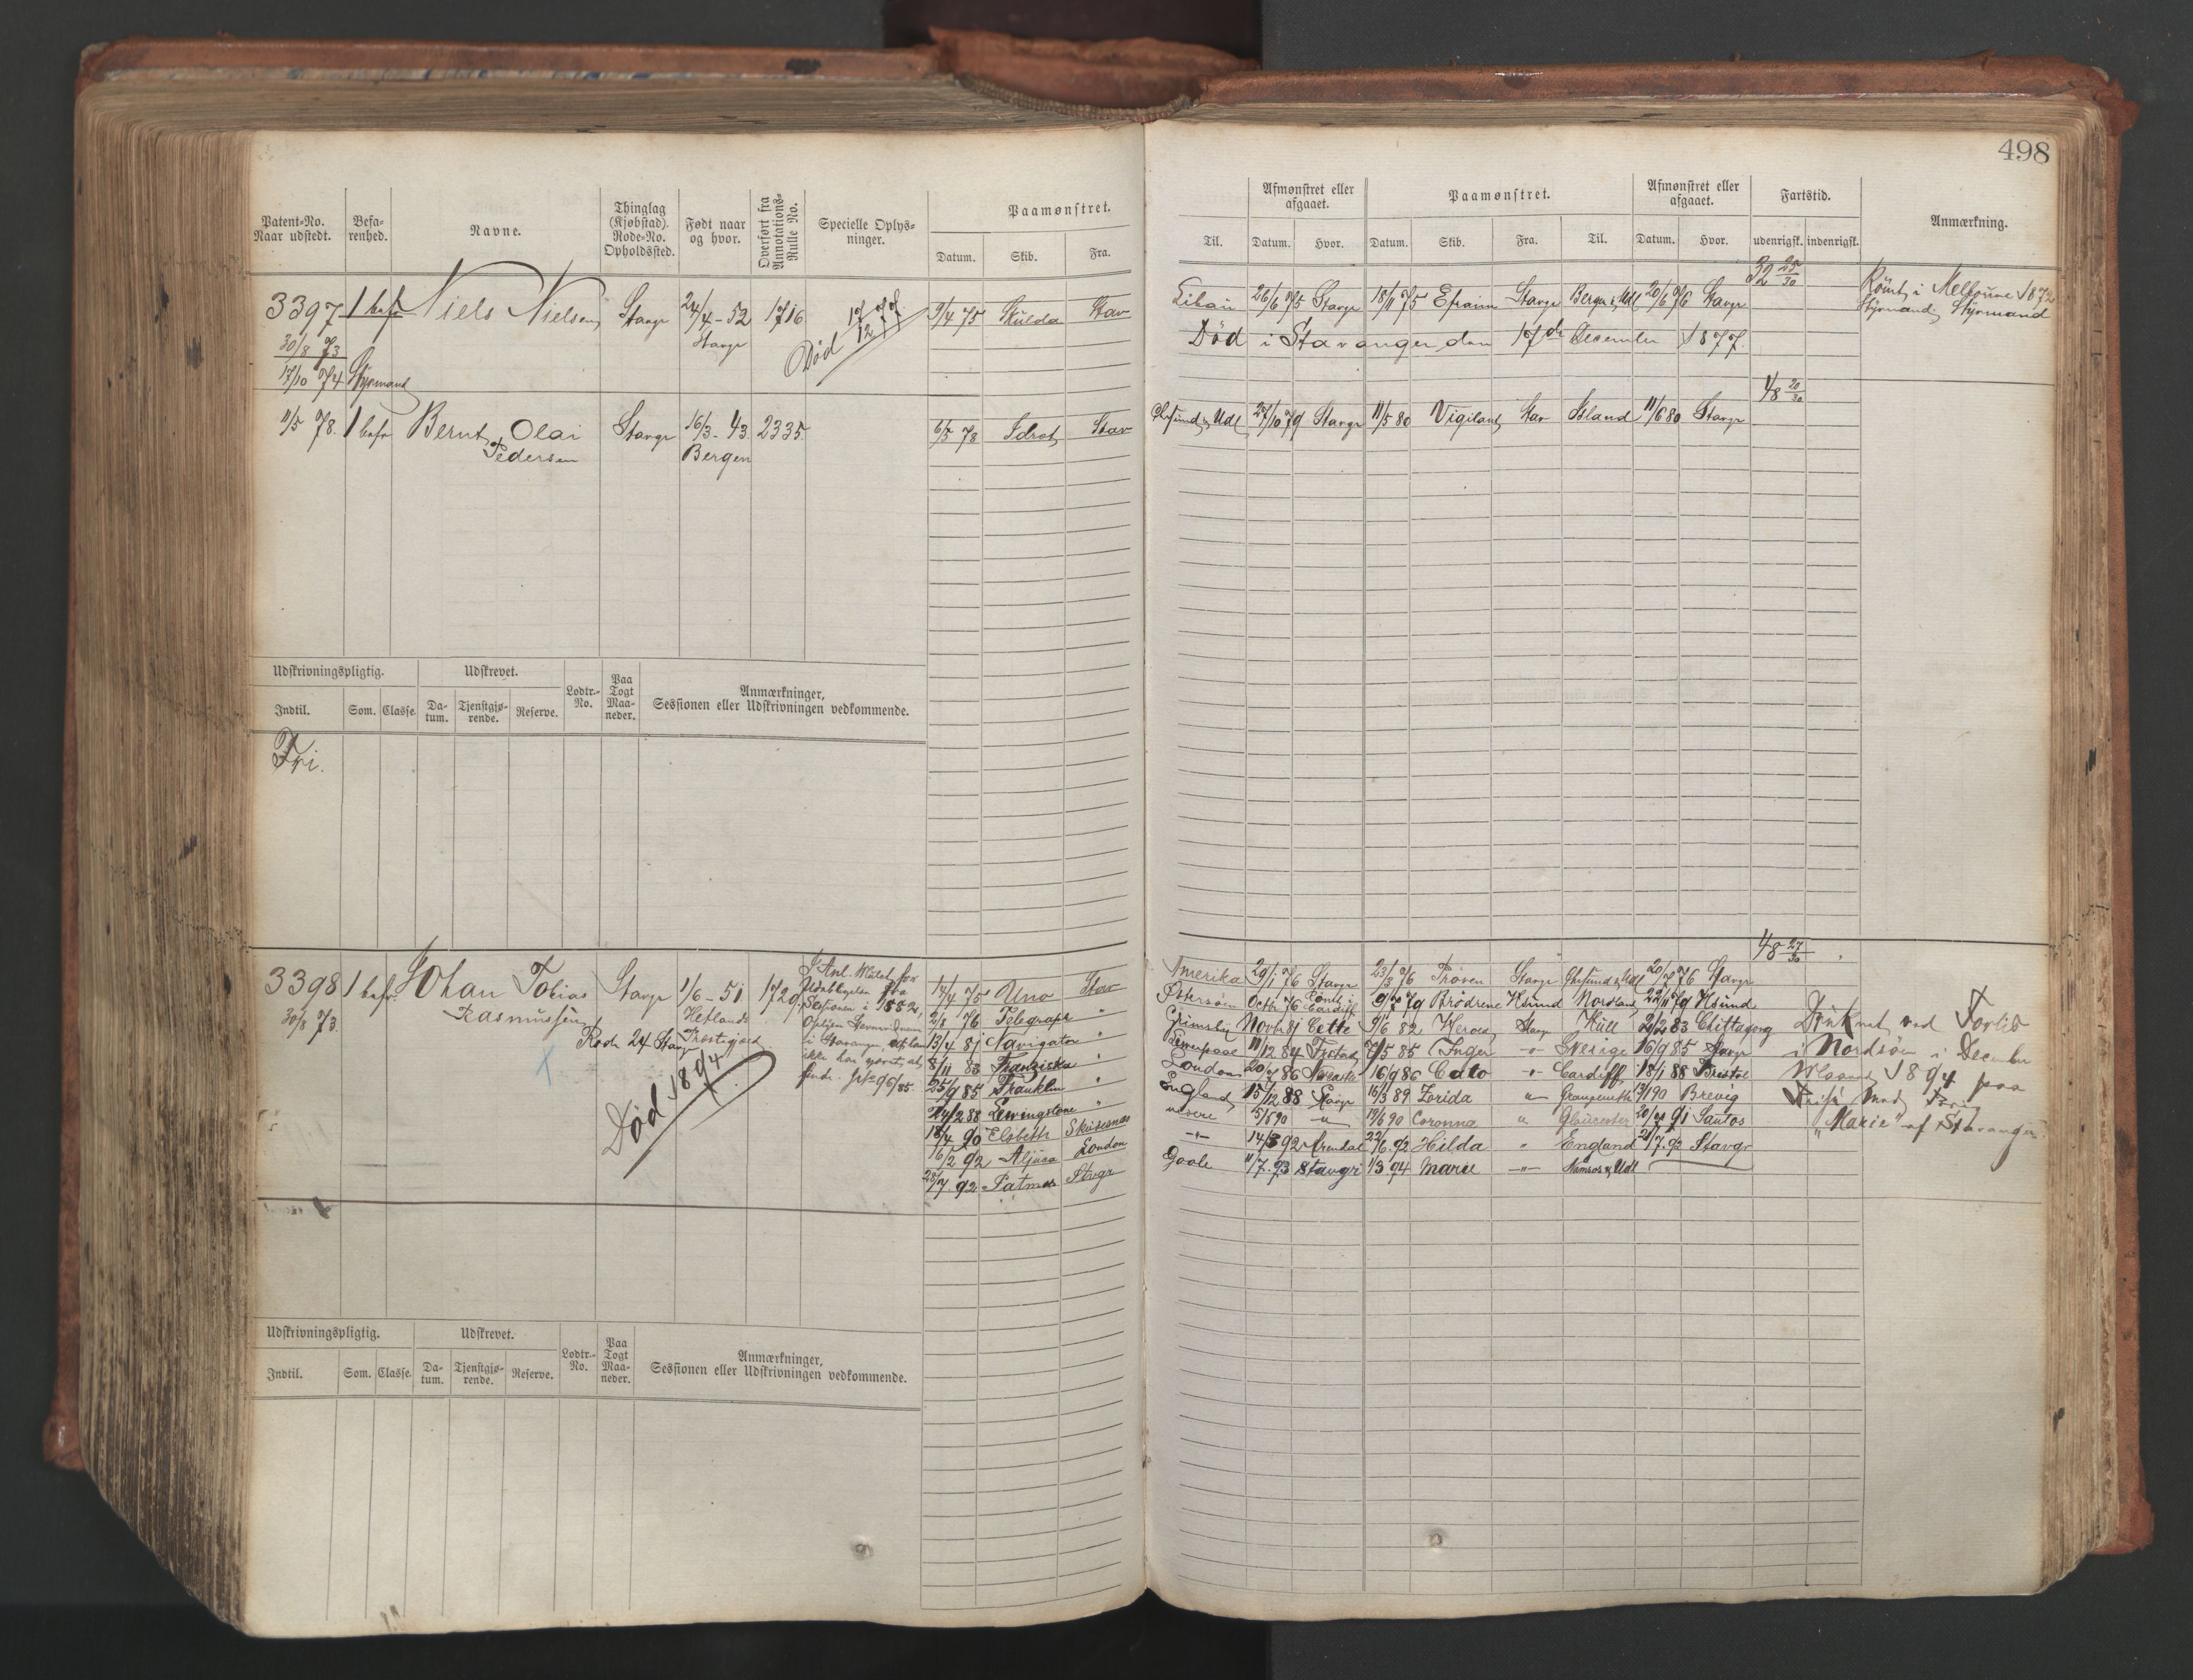 498
Patent-No. Naar udstedt. Befa-renhed. Navne. Thinglag (Kjøbstad). Rode-No. Opholdssted. Født naar og hvor. Overført fra Annotations-Rulle No. Specielle Oplys-ninger. Paamønstret. Datum. Skib. Fra.
Til. Afmønstret eller afgaaet. Datum. Hvor. Paamønstret. Datum. Skib. Fra. Til. Afmønstret eller afgaaet. Datum. Hvor. Fartstid. udenrigsk. indenrigsk. Anmærkning.
32 25/30
3397 1 bef Niels Nielsen Stavgr 24/4-52 1716 Død 17/12 77 9/4 75 Skulda Stav
26/6 75 Stavgr 18/11 75 Efraim Stavgr Bergen & Udl 20/6 76 Stavgr Rømt i Melbourne 1872
30/8 73 Stavgr
Død i Stavanger den 17de December 1877. Styrmand
17/10 74 Styrmand
48 20/30
11/5 78. 1 befr Bernt Olai Stavgr 16/3-43 2335 6/5 78 Idræt Stav
Chrsund & Udl 27/10 79 Stavgr 11/5 80 Vigilant Stav Island 11/6 80 Stavgr
Pedersen Bergen
Udskrivningspligtig. Udskrevet. Lodtr.-No. Paa Togt Maa-neder. Anmærkninger,
Indtil. Som. Classe. Da-tum. Tjenstgjø-rende. Reserve. Sessionen eller Udskrivningen vedkommende.
Fri.
48 27/30
3398 1 befr. Johan Tobias Stavgr 1/6-51 1729 14/4 75 Uno Stav
Amerika 29/1 76 Stavgr 23/3 76 Prøven Stavgr Chrsund & Udl 20/7 76 Stavgr
30/8 73. Rasmussen Hetlands 2/8 76 Telegraph "
Østersøen Octb 76 Cardiff 9/7 79 Brødrene Ksund Nordland 22/11 79 Ksund
Rode 24 Stavgr Præstegjæld 13/4 81 Navigator "
Grimsby Novb 81 Cette 9/6 82 Herold Stavgr Hull 2/2 83 Chittagong Druknet ved Forlis
Sessionen i 1882,
i Stavanger, at han
ikke har været at
finde.
8/11 83 Franziska "
Liverpool 11/12 84 5 85 Inger -"- Sverige 16/9 85 Stavgr i Nordsøen i December
Død 1894 25/9 85 Franklin "
London 20/7 86 16/9 86 Cato -"- Cardiff 18/1 88 Bristol Maaned 1894 paa
24/2 88 Lewingstone "
England 15/12 88 Stavgr 16/3 89 Zorida " 90 Brevig
18/4 90 Elsbeth Skudesnes
5/6 90 -"- 19/6 90 Coronna " Gloucester 91 Santos "Marie" af Stavanger
16/2 92 Aljuca London
-"- 14/3 92 Arendal 22/6 92 Hilda " England 21/7 92 Stavgr
28/7 92 Patmos Stvgr
Goole 11/7 93 Stavgr 1/3 94 Marie -"- Namsos & Udl
Udskrivningspligtig. Udskrevet. Lodtr.-No. Paa Togt Maa-neder. Anmærkninger,
Indtil. Som. Classe. Da-tum. Tjenstgjø-rende. Reserve. Sessionen eller Udskrivningen vedkommende.